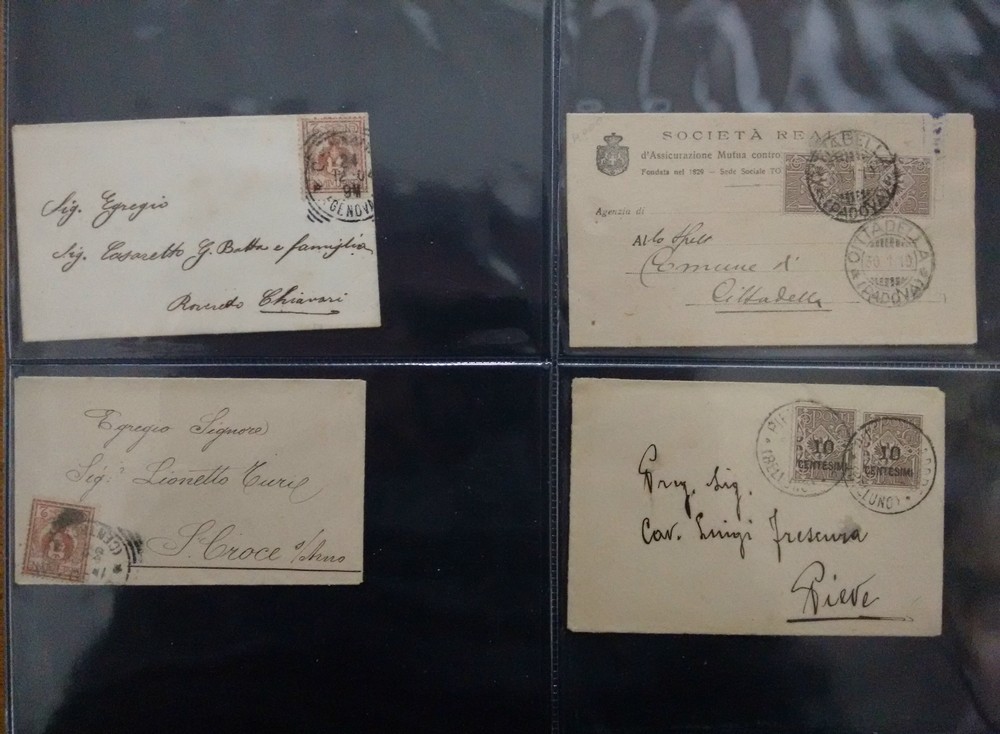 24
12 04
9M
(GENOVA)
Sig. Egregio
Sig. Casaretto G. Batta e famiglia
Chiavari
SOCIETÀ REALE
d'Assicurazione Mutua contro
Fondata nel 1829 - Sede Sociale TO
Agenzia di
CITTADELLA
(PADOVA)
Allo Spett
Comune di
Cittadella
CITTADELLA
(PADOVA)
Egregio Signore
Sig. Lionetto
S. Croce s/Arno
10
CENTESIMI
10
CENTESIMI
Preg. Sig.
Cav. Luigi Frescura
Pieve